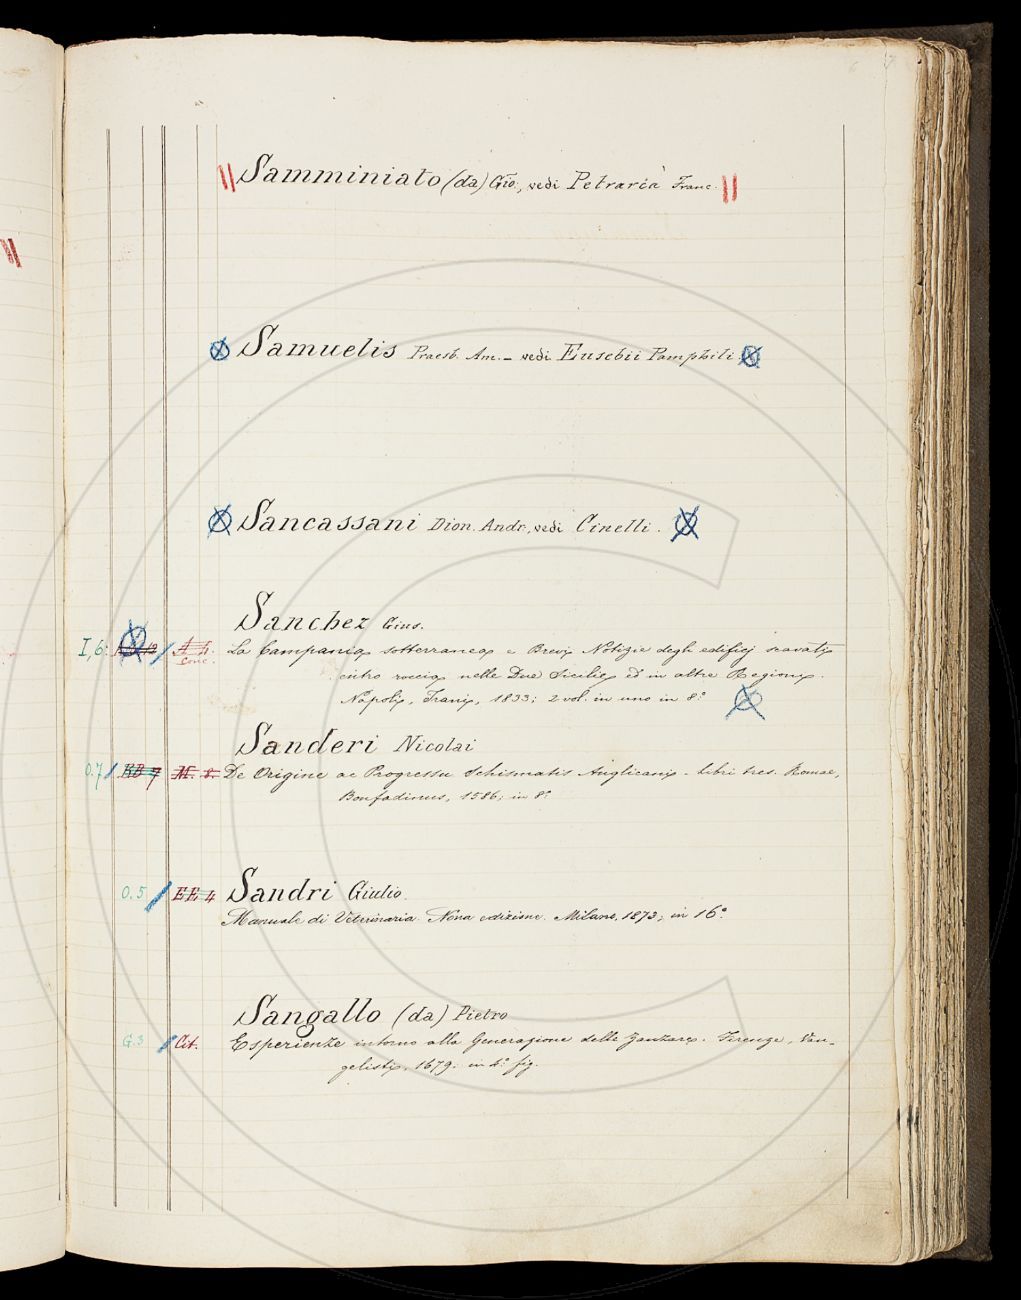 Samminiato (da) Gio., vedi Petrarca Franc.
Samuelis Praesb. Am. – vedi Eusebii Pamphili.
Sancassani Dion. Andr., vedi Cinelli.
Sanchez Gius.
I, 6. A 4. La Campania sotterranea e Brevi Notizie degli edificj scavati
conc. entro roccia nelle Due Sicilie ed in altre Regioni.
Napoli, Trani, 1833; 2 vol. in uno in 8.°
Sanderi Nicolai
O.7 BB 7 M. 8. De Origine ac Progressu Schismatis Anglicani. libri tres. Romae,
Bonfadinus, 1586; in 8.°
Sandri Giulio.
O. 5 EE 4 Manuale di Veterinaria. Nona edizione. Milano, 1873; in 16.°
Sangallo (da) Pietro
G.3 Cit. Esperienze intorno alla Generazione delle Zanzare. Firenze, Van-
gelisti, 1679; in 4.° fig.